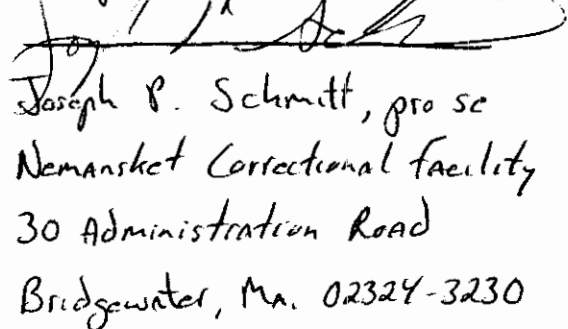 Joseph P. Schmitt, pro se
Nemansket Correctional facility
30 Administration Road
Bridgewater, Ma. 02324-3230